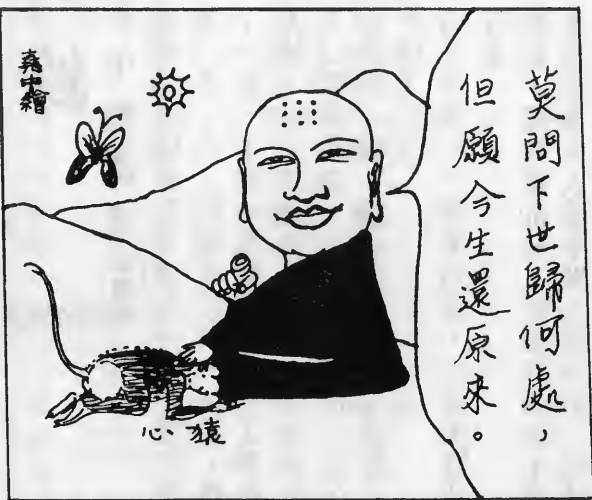 莫問下世歸何處，
但願今生還原來。
堯中繪
心猿